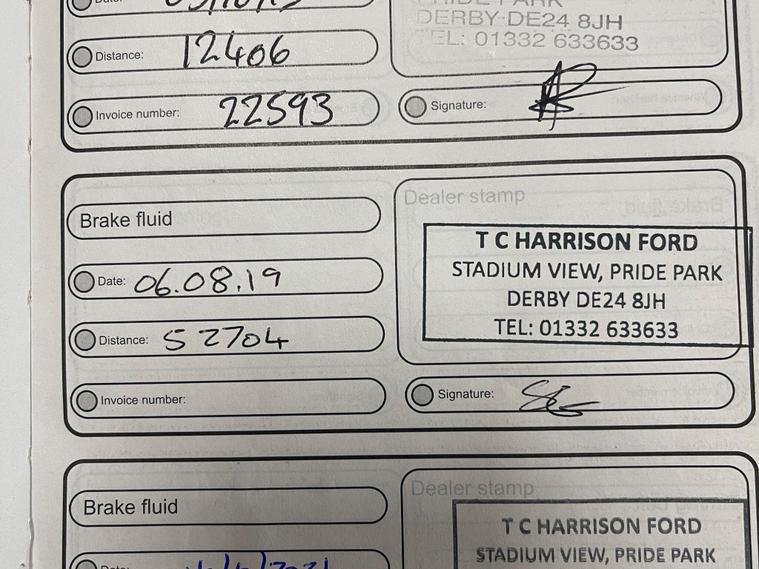 PRIDE PARK
DERBY DE24 8JH
TEL: 01332 633633
Distance: 12406
Invoice number: 22593
Signature:
Brake fluid
Dealer stamp
T C HARRISON FORD
STADIUM VIEW, PRIDE PARK
DERBY DE24 8JH
TEL: 01332 633633
Date: 06.08.19
Distance: 52704
Invoice number:
Signature:
Brake fluid
Dealer stamp
T C HARRISON FORD
STADIUM VIEW, PRIDE PARK